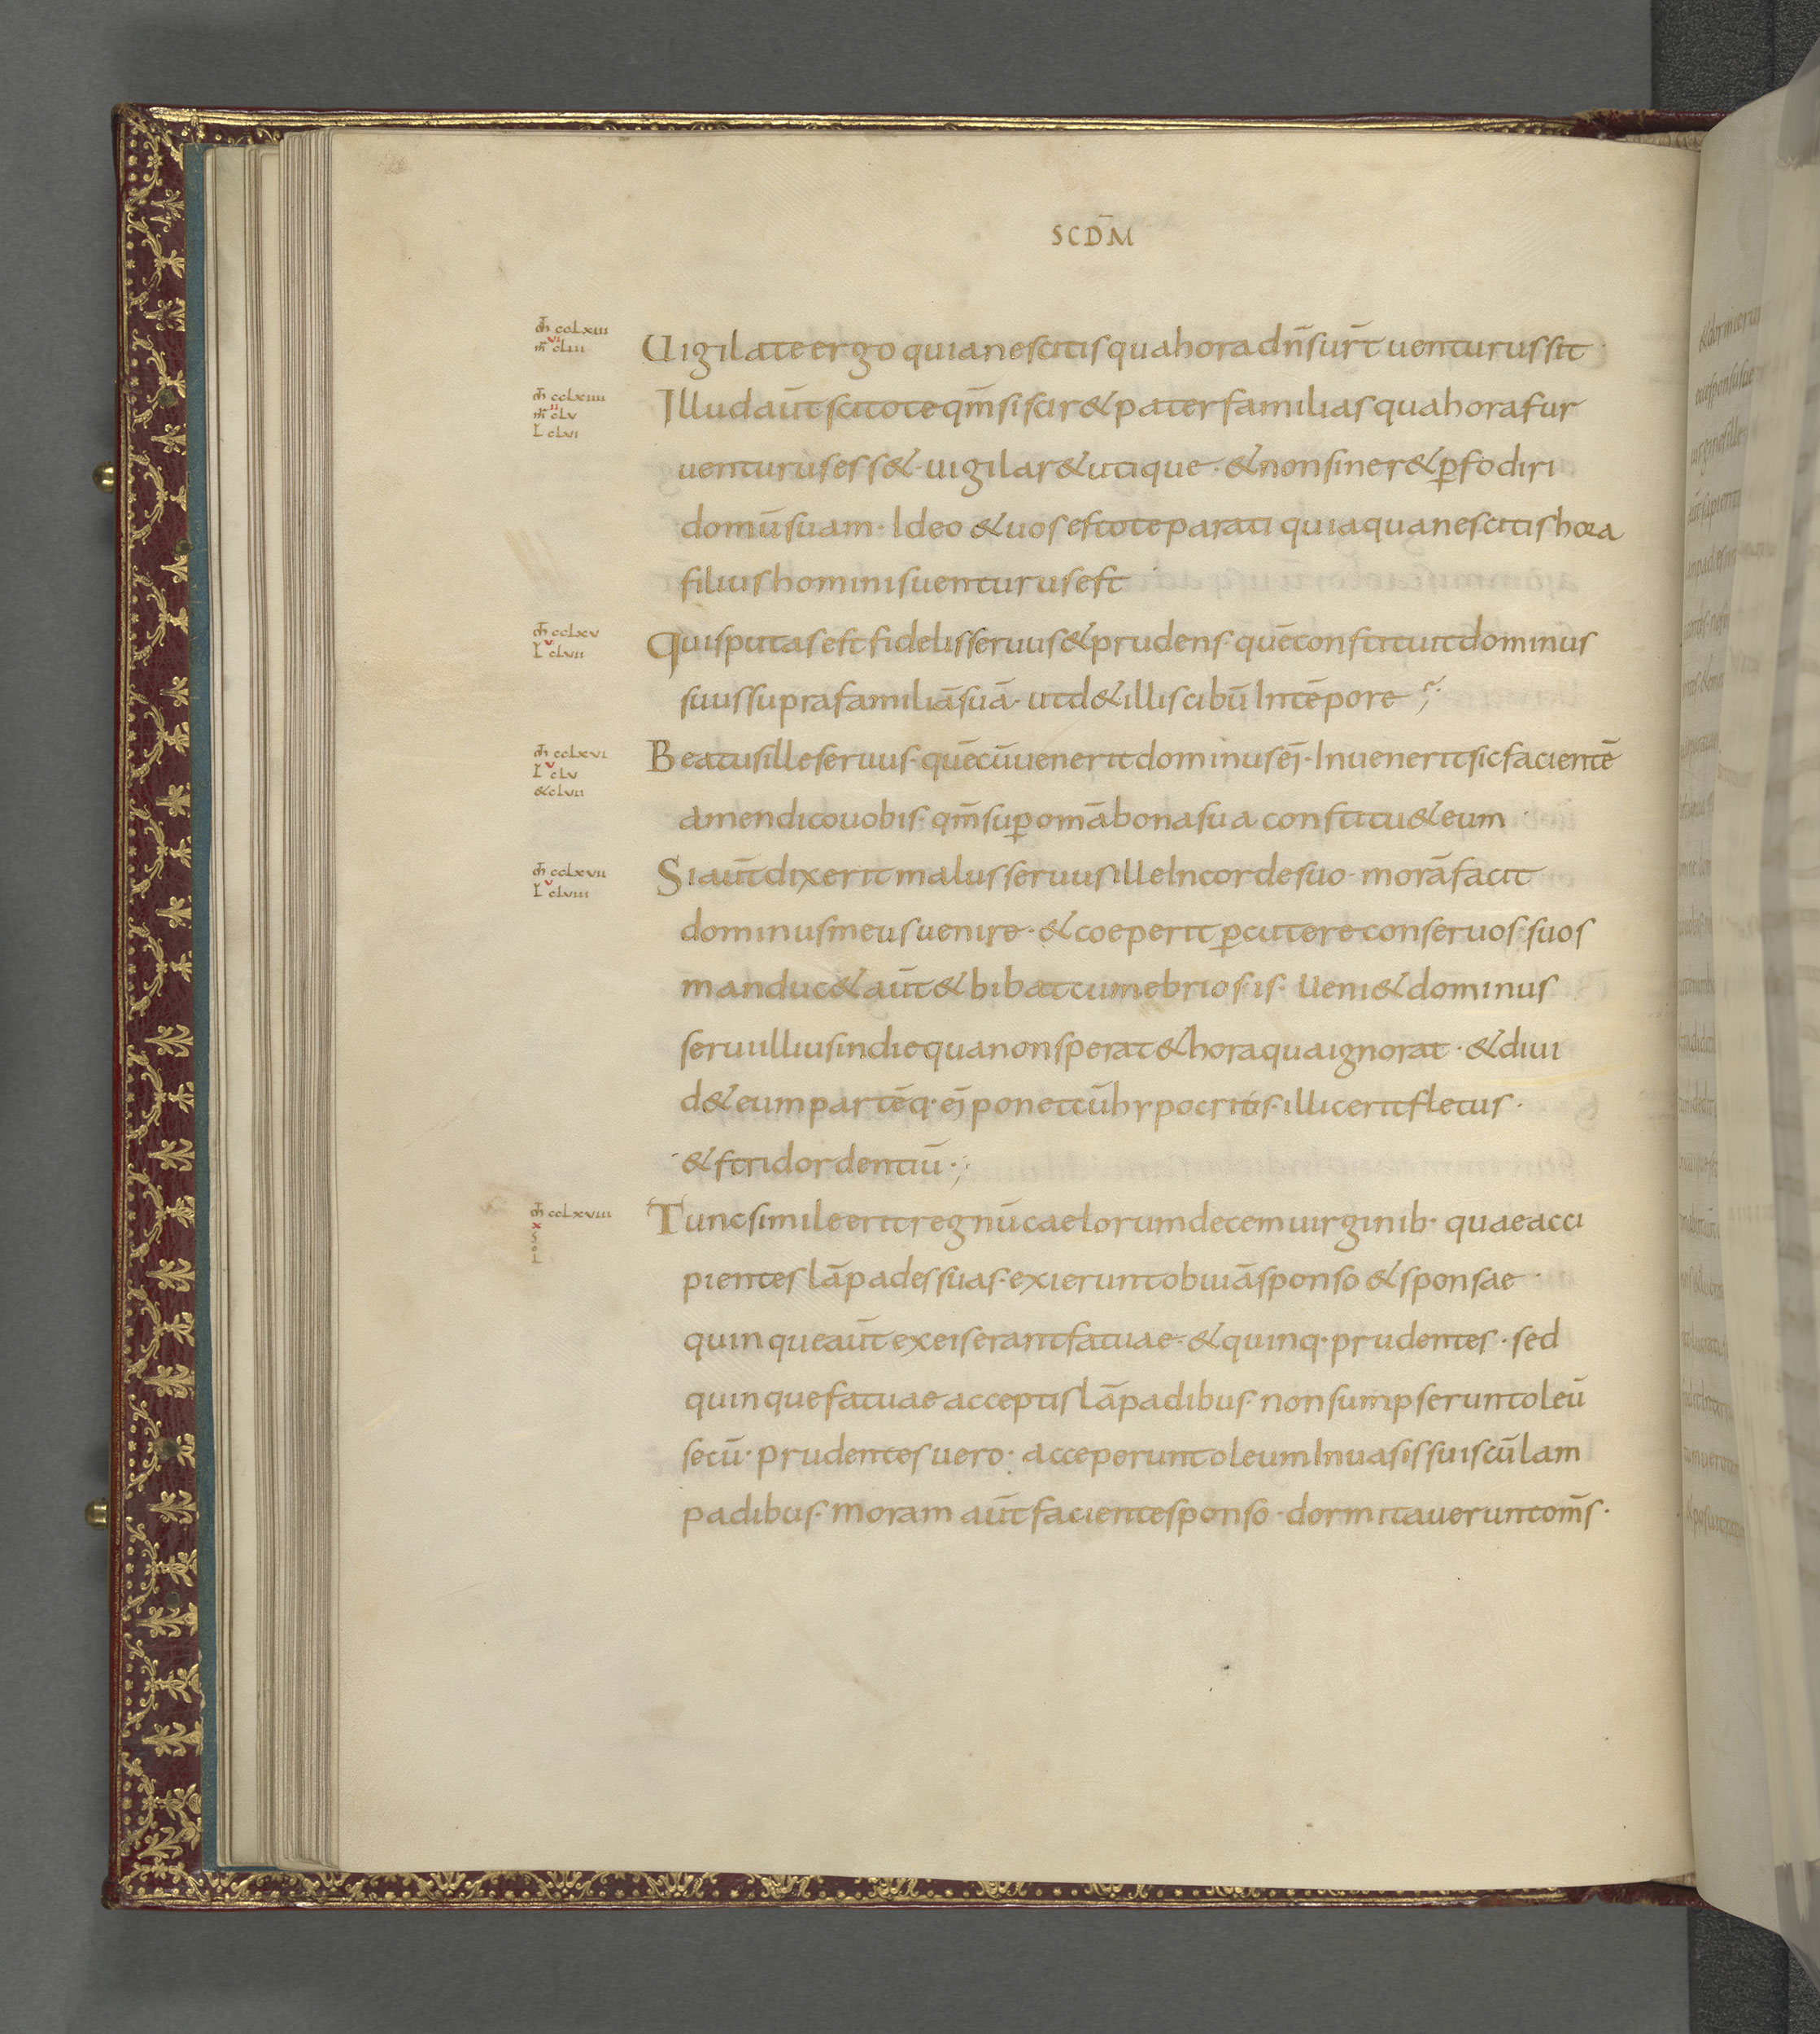 SCD̄M
m̄ ccLxiii
vi
m̄ cLiii
Uigilate ergo quia nescitis qua hora dn̄s ūrt uenturus sit
m̄ ccLxiiii
ii
m̄ cLv
L̄ cLvi
Illud aūt scitote qm̄ si scir& pater familias qua hora fur
uenturus ess& · uigilar& utique · & non siner& ꝑfodiri
domū suam · Ideo & uos estote parati quia qua nescitis hora
filius hominis uenturus est
m̄ ccLxv
v
L̄ cLvii
Quis putas est fidelis seruus & prudens · quē constituit dominus
suus supra familiā suā · ut d& illis cibū In tēpore
m̄ ccLxvi
v
L̄ cLv
& cLvii
Beatus ille seruus · quē cū uenerit dominus eꝯ · Inuenerit sic facientē
amen dico uobis · qm̄ suꝑ om̄a bona sua constitu& eum
m̄ ccLxvii
v
L̄ cLviii
Si aūt dixerit malus seruus ille In corde suo · morā facit
dominus meus uenire · & coeperit ꝑcutere conseruos suos
manduc& aūt & bibat cum ebriosis · Ueni& dominus
serui illius in die qua non sperat & hora qua ignorat · & diui
d& eum partēq· eꝯ ponet cū hypocritis · illic erit fletus ·
& stridor dentiū ·;
m̄ ccLxviii
x
S
o
L
Tunc simile erit regnū caelorum decem uirginib· quae acci
pientes lāpades suas · exierunt obuiā sponso & sponsae
quinque aūt ex eis erant fatuae · & quinq· prudentes · sed
quinque fatuae acceptis lāpadibus · non sumpserunt oleū
secū · prudentes uero · acceperunt oleum In uasis suis cū lam
padibus · moram aūt faciente sponso · dormitauerunt om̄s ·